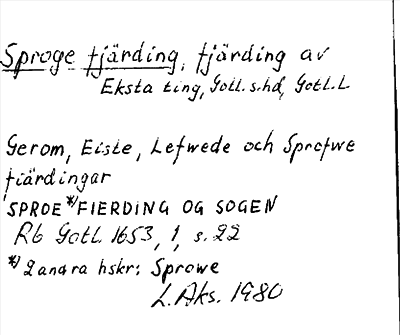 Sproge fjärding, fjärding av
Eksta ting, Gotl. s. hd, Gotl. L
Gerom, Eiste, Lefwede och Sprofwe
fiärdingar
SPROE*) FIERDING OG SOGEN
Rb Gotl. 1653, 1, s. 22
*) 2 andra hskr: Sprowe
L. Aks. 1980